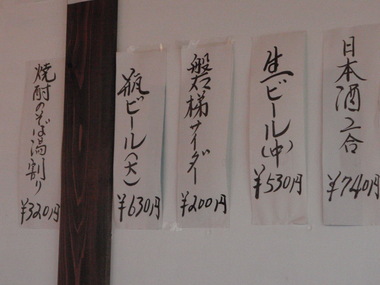 日本酒2合
¥740円
生ビール(中)
¥530円
磐梯サイダー
¥200円
瓶ビール(大)
¥630円
焼酎のそば湯割り
¥320円